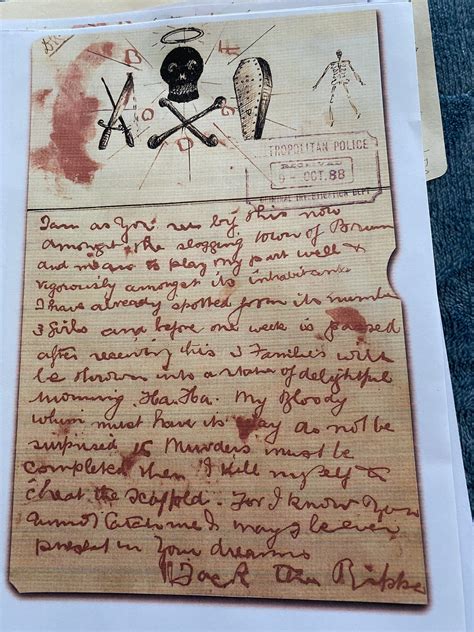 B G O D
METROPOLITAN POLICE
RECEIVED
9 - OCT. 88
CRIMINAL INVESTIGATION DEPT
I am as you see by this now
amongst the slogging town of Brum
and mean to play my part well &
vigorously amongst its inhabitants
I have already spotted from its number
3 girls and before one week is passed
after receiving this 3 Families will
be thrown into a state of delightful
mourning. Ha. Ha. My Bloody
whim must have its way do not be
surprised 15 Murders must be
completed then I kill myself &
cheat the scaffold. For I know you
cannot Catch me & I may be even
present in your dreams
Jack the Ripper